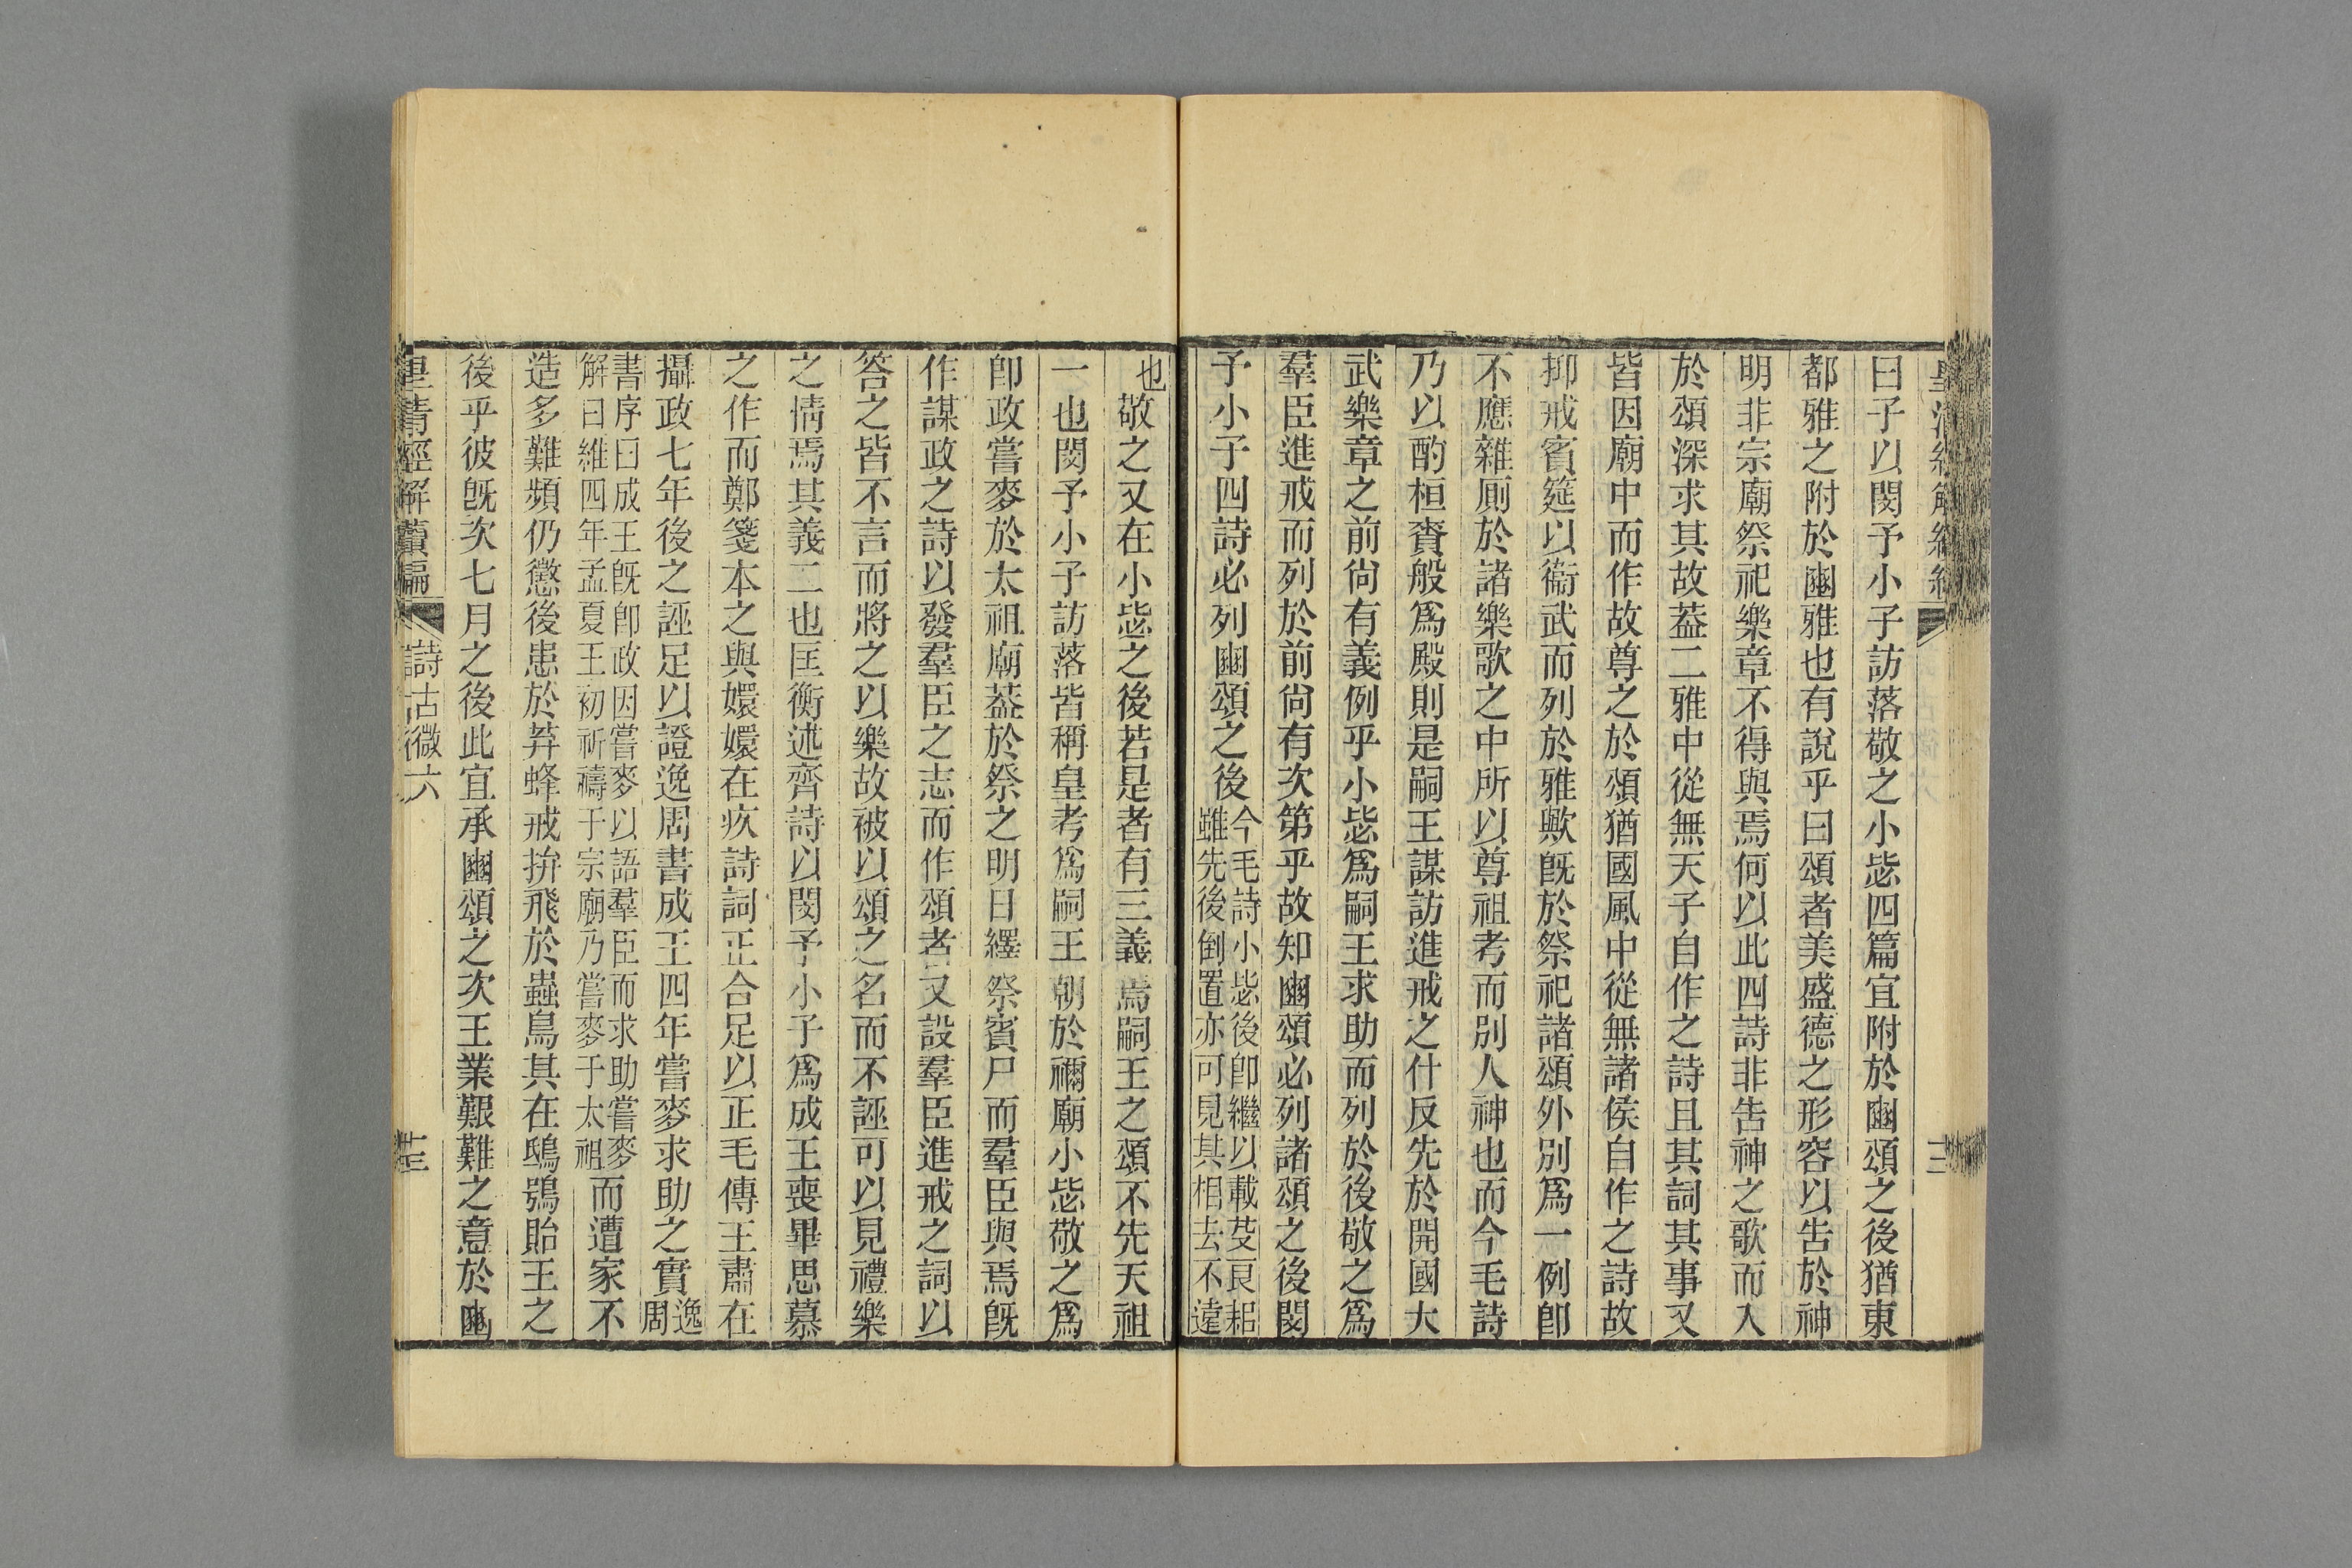 曰子以閔予小子訪落敬之小毖四篇宜附於豳頌之後猶東
都雅之附於豳雅也有說乎曰頌者美盛德之形容以告於神
明非宗廟祭祀樂章不得與焉何以此四詩非告神之歌而入
於頌深求其故葢二雅中從無天子自作之詩且其詞其事又
皆因廟中而作故尊之於頌猶國風中從無諸侯自作之詩故
抑戒賓筵以衞武而列於雅歟旣於祭祀諸頌外別爲一例卽
不應雜厠於諸樂歌之中所以尊祖考而別人神也而今毛詩
乃以酌桓賚般爲殿則是嗣王謀訪進戒之什反先於開國大
武樂章之前尙有義例乎小毖爲嗣王求助而列於後敬之爲
羣臣進戒而列於前尙有次第乎故知豳頌必列諸頌之後閔
予小子四詩必列豳頌之後今毛詩小毖後卽繼以載芟良耜雖先後倒置亦可見其相去不遠
也敬之又在小毖之後若是者有三義焉嗣王之頌不先天祖
一也閔予小子訪落皆稱皇考爲嗣王朝於禰廟小毖敬之爲
卽政嘗麥於太祖廟葢於祭之明日繹祭賓尸而羣臣與焉旣
作謀政之詩以發羣臣之志而作頌者又設羣臣進戒之詞以
答之皆不言而將之以樂故被以頌之名而不誣可以見禮樂
之情焉其義二也匡衡述齊詩以閔予小子爲成王喪畢思慕
之作而鄭箋本之與嬛嬛在疚詩詞正合足以正毛傳王肅在
攝政七年後之誣足以證逸周書成王四年嘗麥求助之實逸周
書序曰成王旣卽政因嘗麥以語羣臣而求助嘗麥解曰維四年孟夏王初祈禱于宗廟乃嘗麥于太祖而遭家不
造多難頻仍懲後患於荓蜂戒拚飛於蟲鳥其在鴟鴞貽王之
後乎彼旣次七月之後此宜承豳頌之次王業艱難之意於豳
皇清經解續編
詩古微六
十三